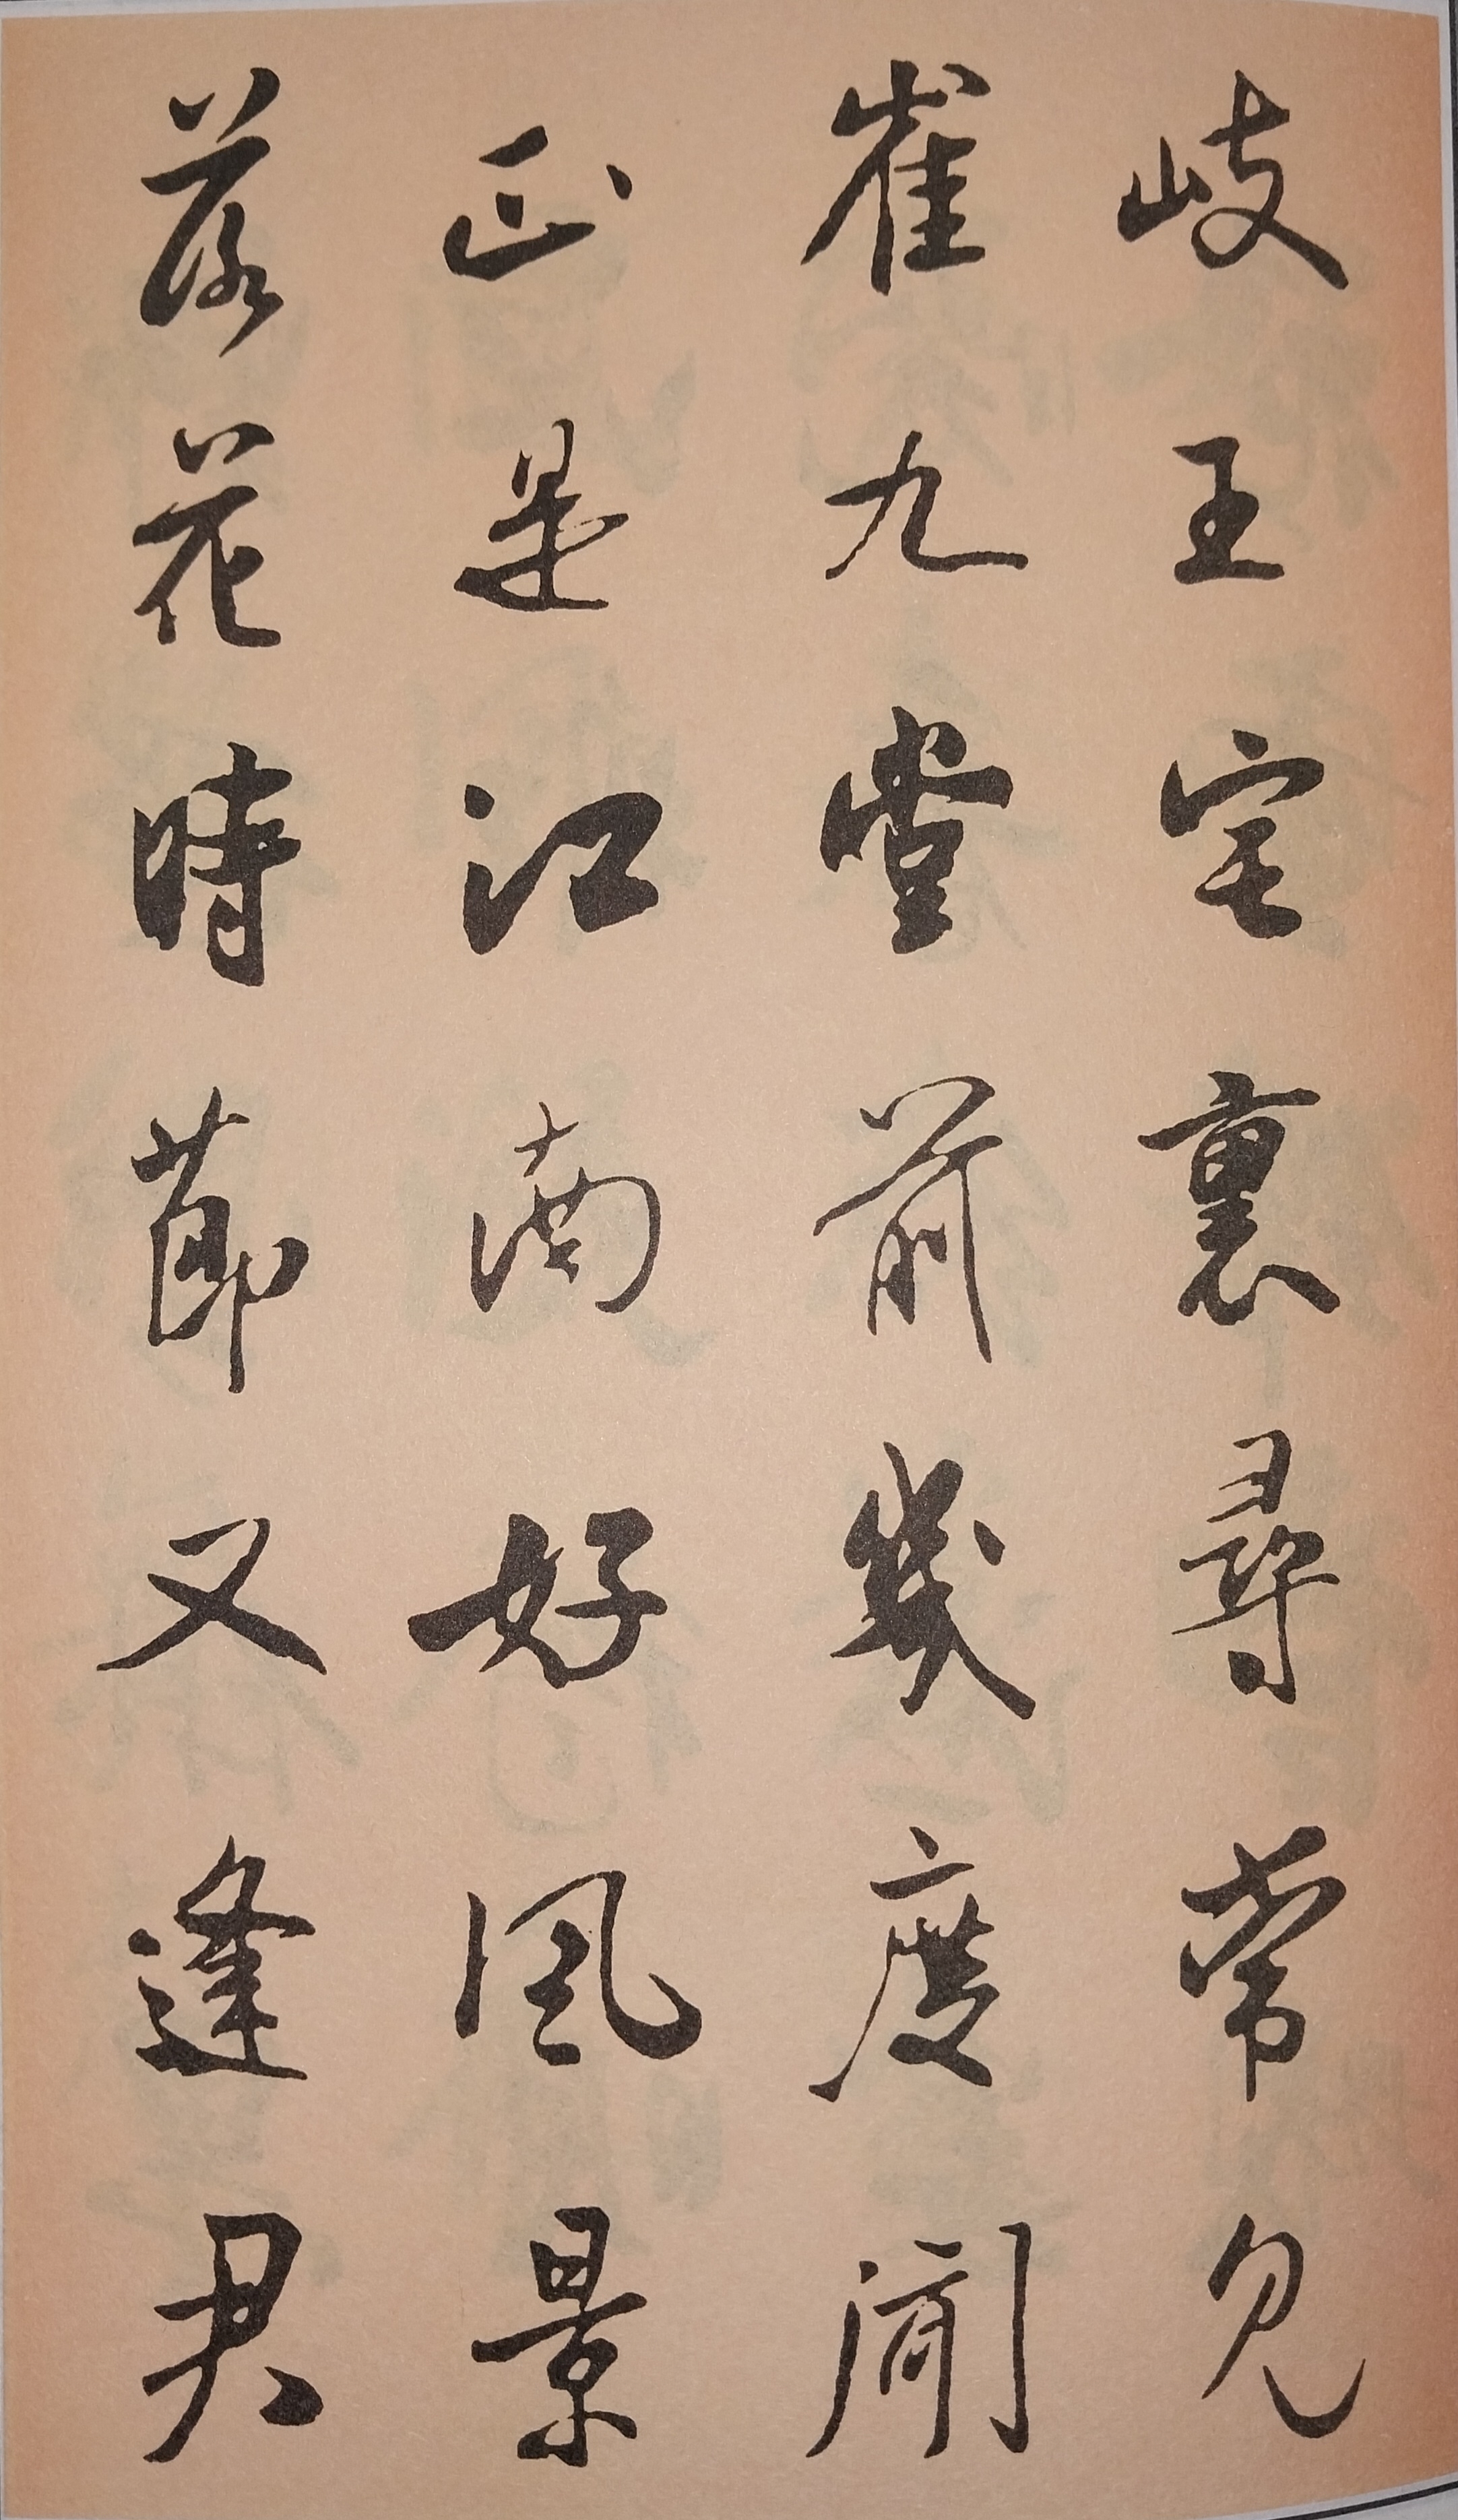 岐王宅裏尋常見
崔九堂前幾度聞
正是江南好風景
落花時節又逢君